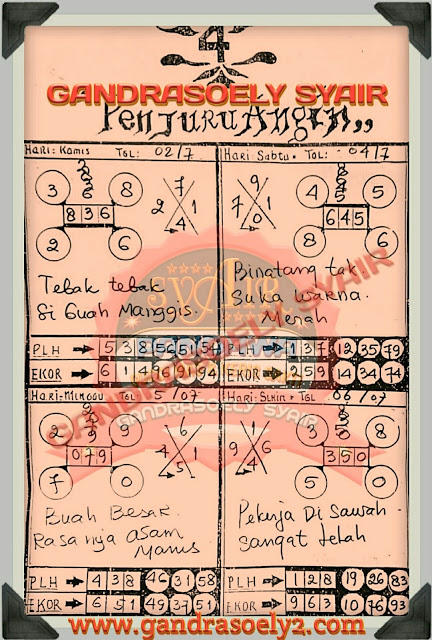 4
GANDRASOELY SYAIR
Penjuru Angin,,
Hari: Kamis TGL: 02/7
3 8
8 3 6
2 6
7
2 1
4
Tebak tebak
Si Buah Manggis.
PLH 5 3 8 56 51 54
EKOR 6 1 4 96 91 94
Hari Sabtu TGL: 04/7
4 5
6 4 5
8 6
9
7 1
0
Binatang tak
Suka warna.
Merah
PLH 1 3 7 12 35 79
EKOR 2 5 9 14 34 74
SYAIR
GANDRASOELY SYAIR
GANDRASOELY SYAIR
Hari: Minggu 5/07
2 9
0 7 9
7 0
4
6 1
5
Buah Besar.
Rasanya asam
Manis
PLH 4 3 8 46 31 58
EKOR 6 5 1 49 37 51
Hari: Senin TGL 06/07
3 8
3 5 0
5 0
1 4
9 6
Pekerja Di Sawah
Sangat Lelah
PLH 1 2 8 19 26 83
EKOR 9 6 3 10 76 93
www.gandrasoely2.com